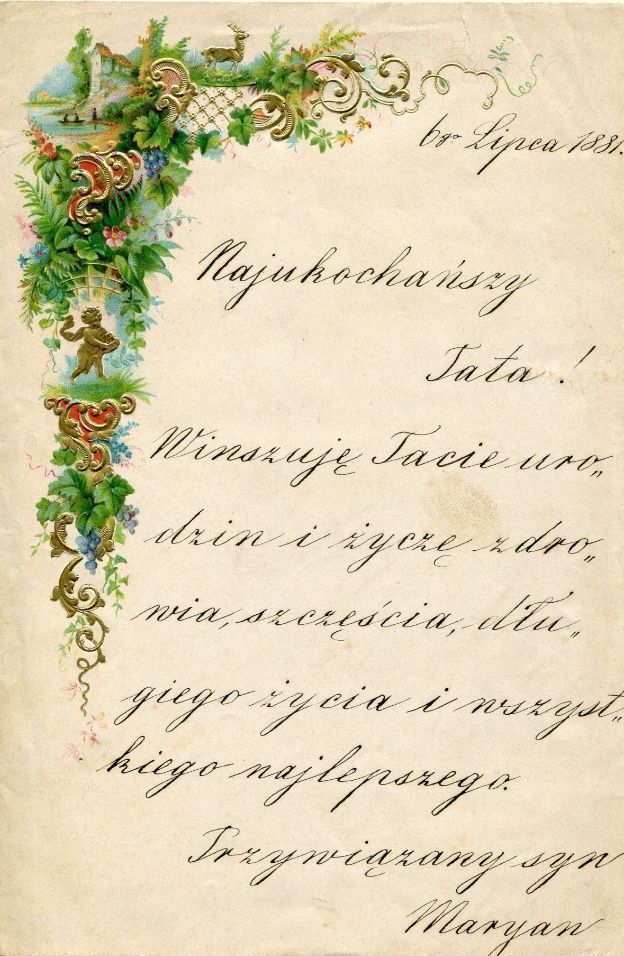 6go Lipca 1881.
Najukochańszy
Tata!
Winszuję Tacie uro„
dzin i życzę zdro„
wia, szczęścia, dłu„
giego życia i wszyst„
kiego najlepszego.
Przywiązany syn
Maryan